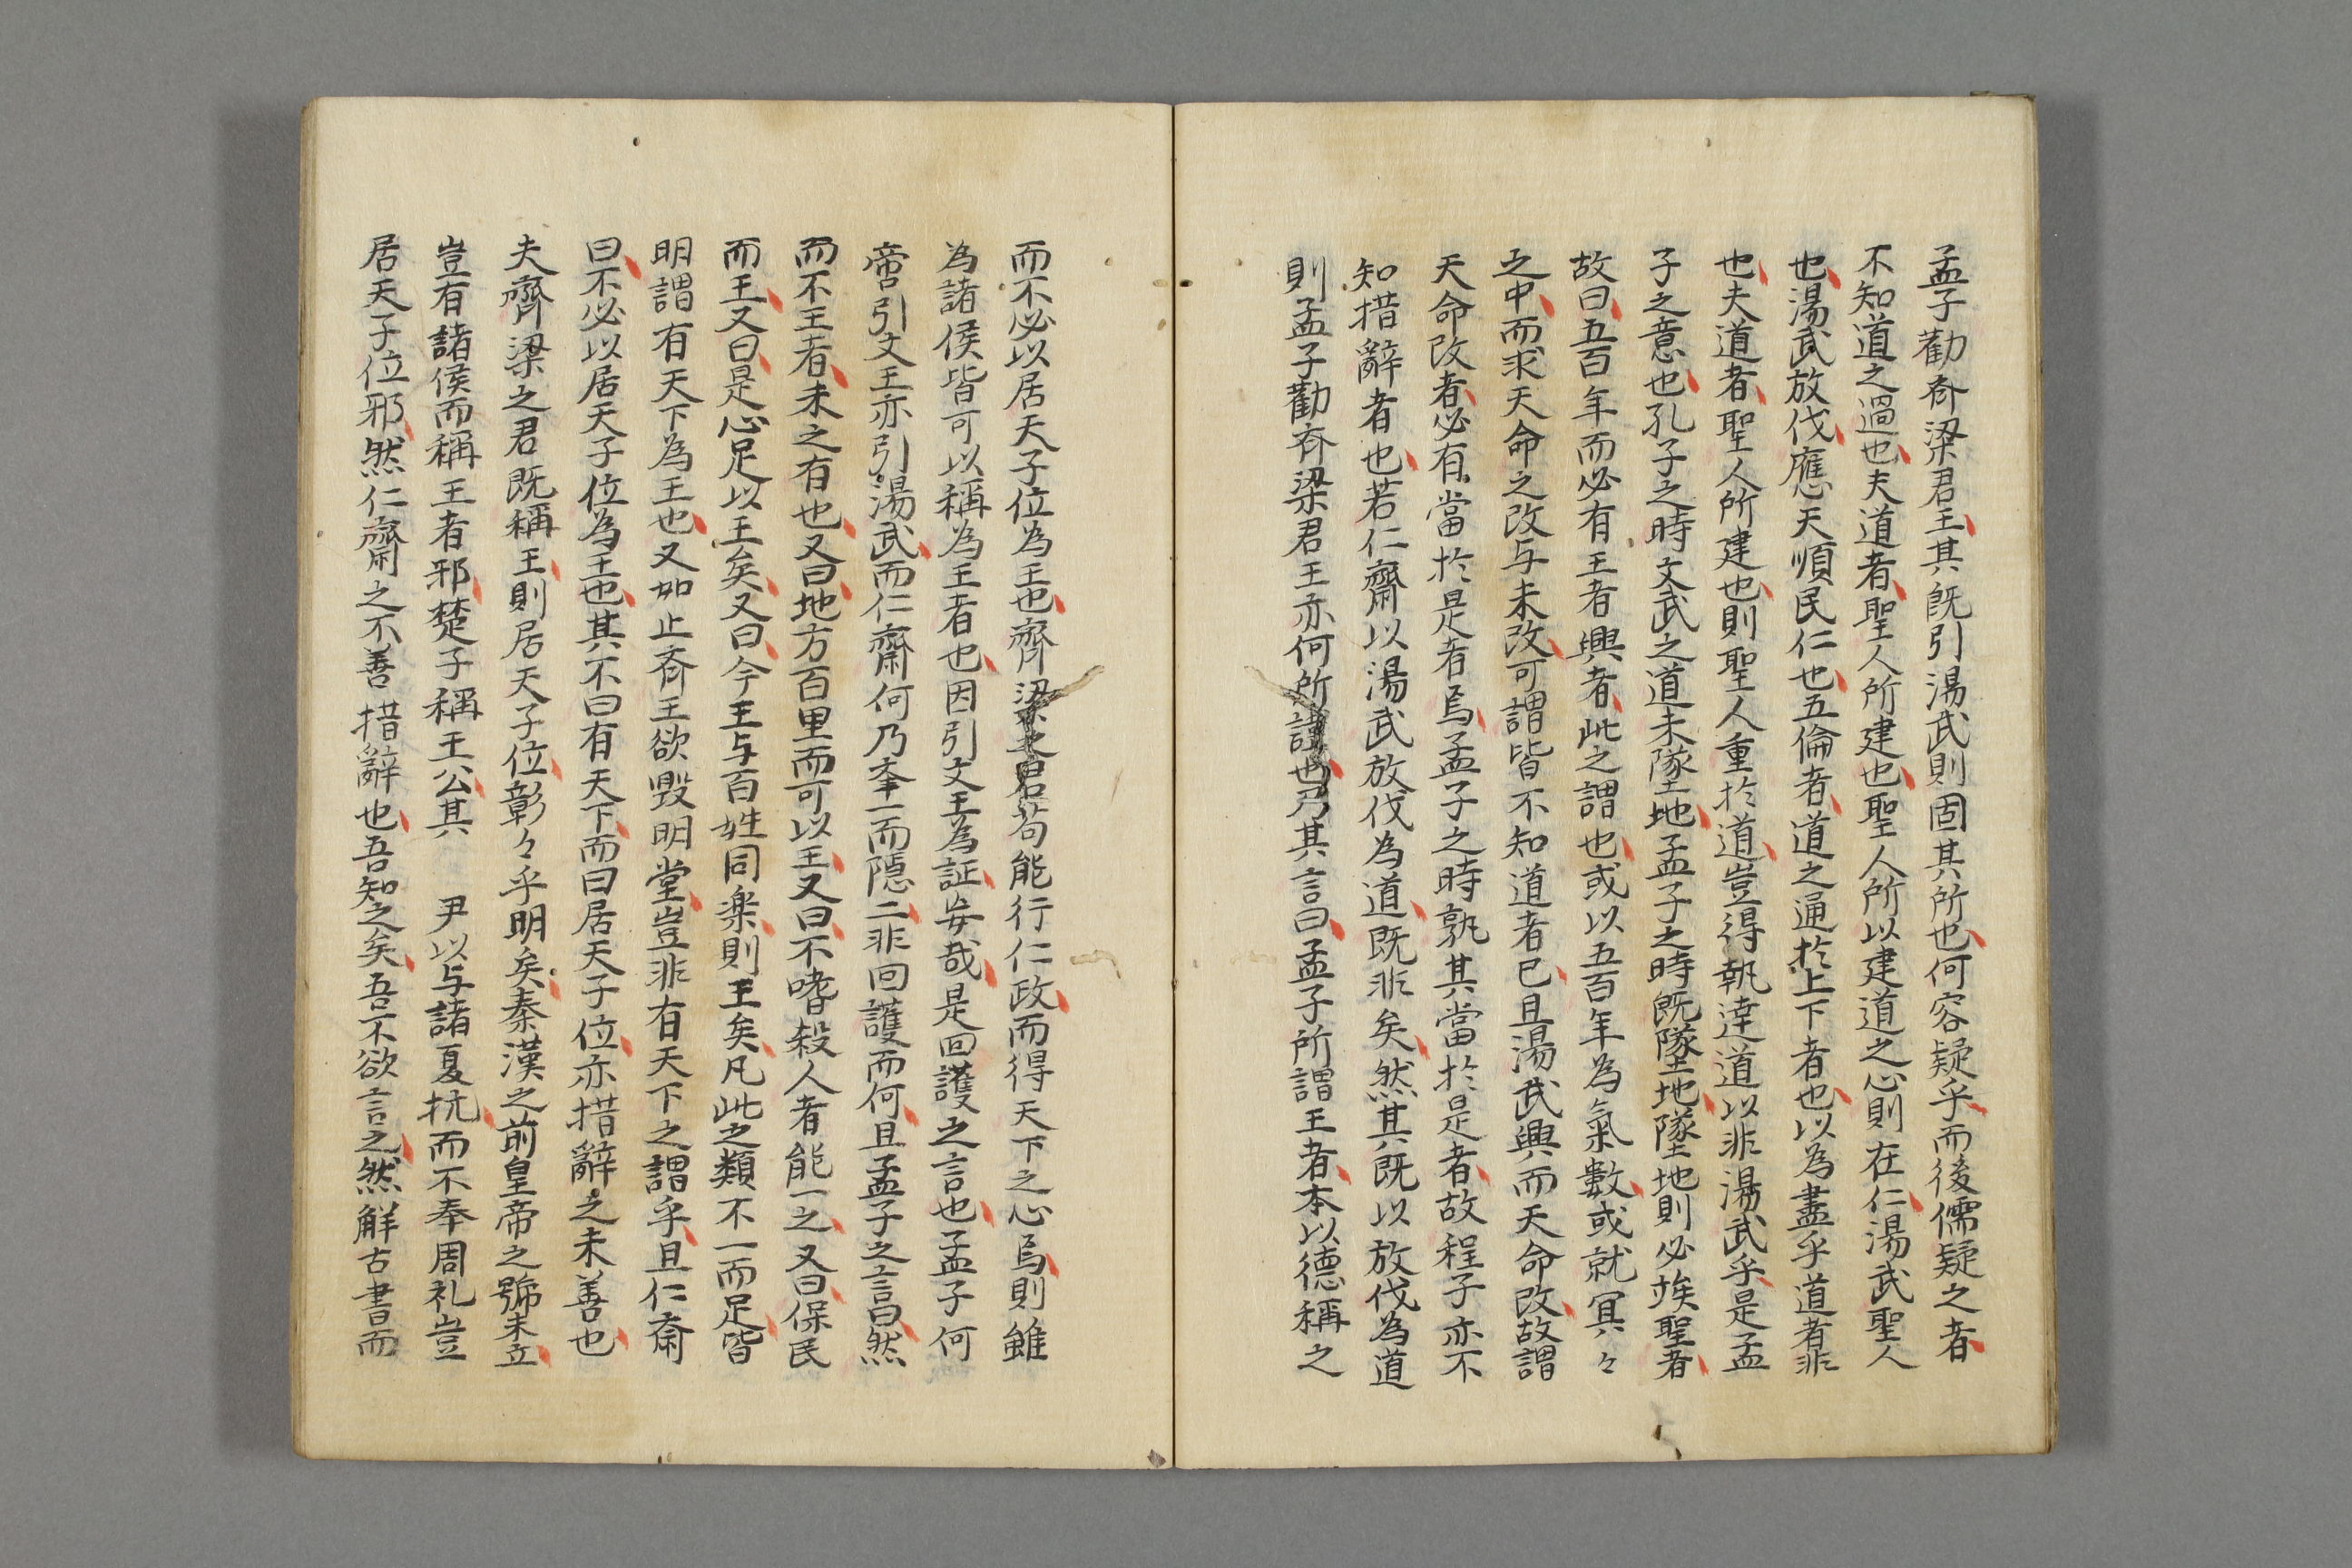 孟子勸齐梁君王其既引湯武則固其所也何容疑乎而後儒疑之者
不知道之過也夫道者聖人所建也聖人所以建道之心則在仁湯武聖人
也湯武放伐應天順民仁也五倫者道之通於上下者也以為盡乎道者非
也夫道者聖人所建也則聖人重於道豈得執達道以非湯武乎是孟
子之意也孔子之時文武之道未墜地孟子之時既墜地墜地則必竢聖者
故曰五百年而必有王者興者此之謂也或以五百年為氣數或就冥々
之中而求天命之改与未改可謂皆不知道者已且湯武興而天命改故謂
天命改者必有當於是者焉孟子之時孰其當於是者故程子亦不
知措辭者也若仁齋以湯武放伐為道既非矣然其既以放伐為道
則孟子勸齐梁君王亦何所謹也乃其言曰孟子所謂王者本以德稱之
而不必以居天子位為王也齊梁之君苟能行仁政而得天下之心焉則雖
為諸侯皆可以稱為王者也因引文王為証妄哉是回護之言也孟子何
啻引文王亦引湯武而仁齋何乃夆一而隱二非回護而何且孟子之言曰然
而不王者未之有也又曰地方百里而可以王又曰不嗜殺人者能一之又曰保民
而王又曰是心足以王矣又曰今王与百姓同楽則王矣凡此之類不一而足皆
明謂有天下為王也又如止齐王欲毀明堂豈非有天下之謂乎且仁齋
曰不必以居天子位為王也其不曰有天下而曰居天子位亦措辭之未善也
夫齊梁之君既稱王則居天子位彰々乎明矣秦漢之前皇帝之號未立
豈有諸侯而稱王者邪楚子稱王公其 尹以与諸夏抗而不奉周礼豈
居天子位邪然仁齋之不善措辭也吾知之矣吾不欲言之然解古書而